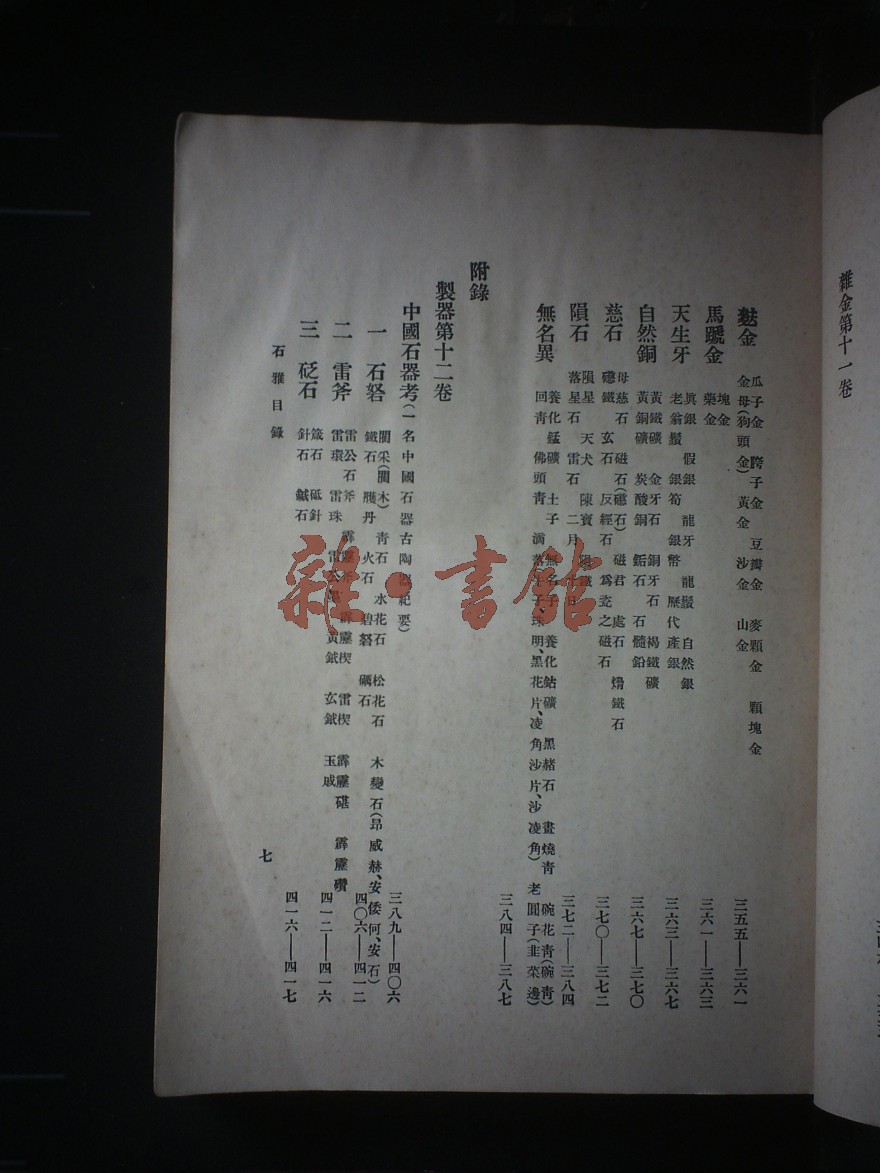 雜金第十一卷
麩金
瓜子金 胯子金 豆瓣金 麥顆金 顆塊金
金母(狗頭金) 黃金 沙金 山金
三五五——三六一
馬蹏金
塊金
藥金
三六一——三六三
天生牙
眞銀 假銀 龍牙 龍鬚 自然銀
老翁鬚 銀筍 銀幣 歷代產銀
三六三——三六七
自然銅
黃鐵礦 金牙石 銅牙石 褐鐵礦
黃銅礦 炭酸銅 鉐石 石髓鉛
三六七——三七〇
慈石
母慈石 磁石(礠石) 磁君 處石 熁鐵石
礠鐵 玄石 反經石 爲瓷之磁石
三七〇——三七二
隕石
隕星 天犬 陳寶 隕鐵
落星石 雷石 二月
三七二——三八四
無名異
養化錳礦 土子 無名子 養化鈷礦 黑赭石 畫燒靑 碗花靑(碗靑)
回靑 佛頭靑 珠明、黑花片、凌角沙片、沙凌角) 老圓子(韭菜邊)
三八四——三八七
附錄
製器第十二卷
中國石器考(一名中國石器古陶器紀要)
一 石砮
靑石 水花石 松花石 木變石(昻威赫、安倭何、安石)
鐵石 火石 碧砮 礪石
三八九——四〇六
二 雷斧
雷公石斧 霹靂斧 霹靂楔 雷楔 霹靂碪 霹靂礸
雷環 雷珠 雷公 黃鉞 玄鉞 玉戚
四〇六——四一二
四一二——四一六
三 砭石
箴石 砥針
針石 鍼石
四一六——四一七
石雅目錄
七
雜·書館